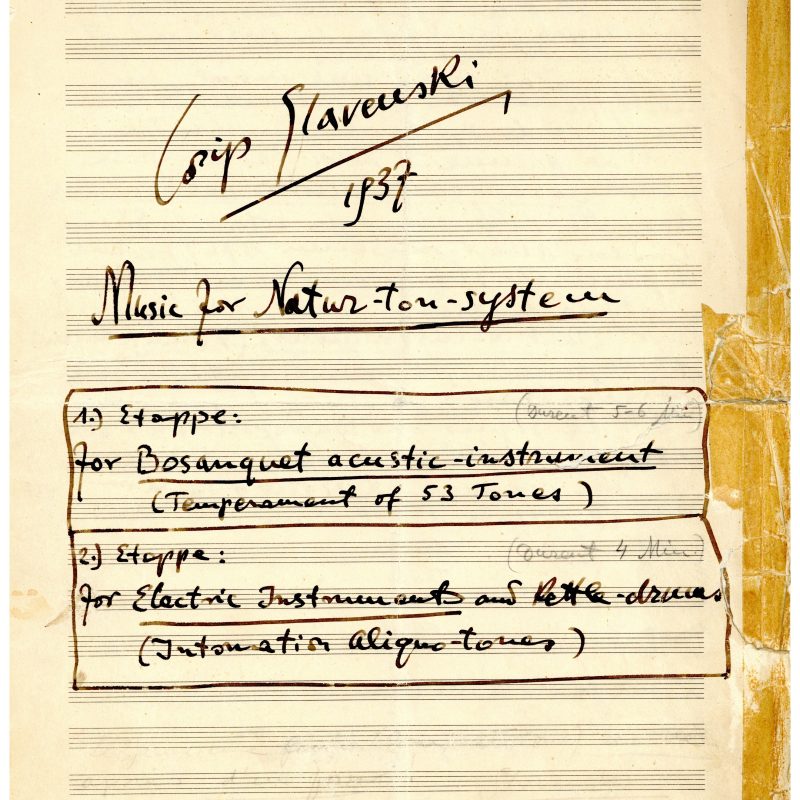 Josip Slavenski
1937
Music for Natur-ton-system
1.) Etappe:
(Durent 5-6 Min)
for Bosanquet acustic-instrument
(Temperament of 53 Tones)
2.) Etappe:
(Durent 4 Min.)
for Electric Instruments and Kettle-drums
(Intonation Aliquo-tones)